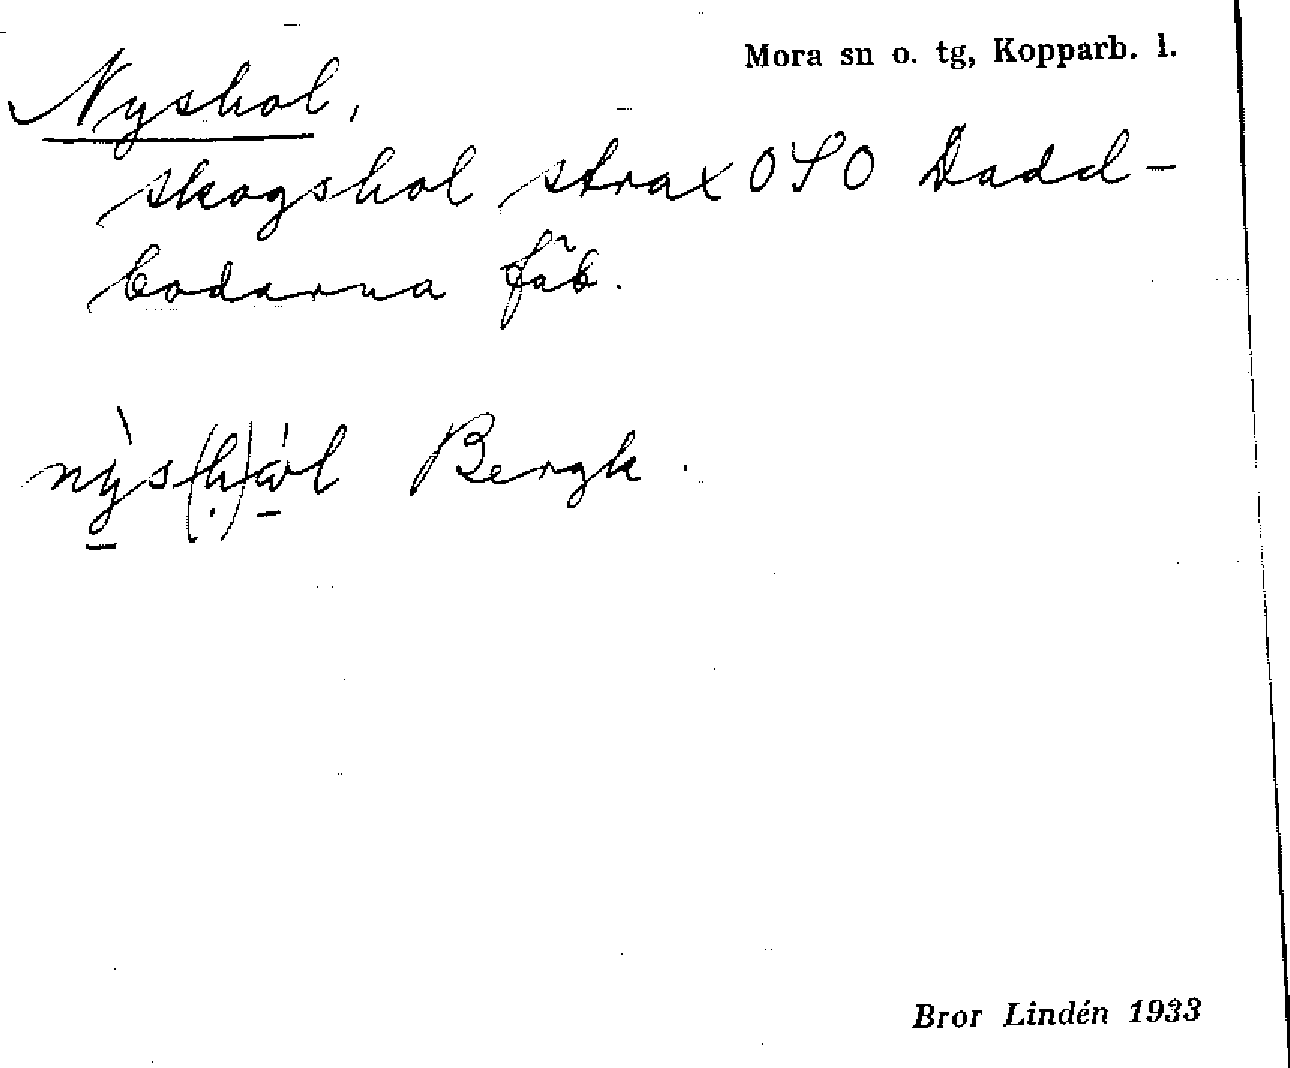 Mora sn o. tg, Kopparb. l.
Nyshol,
skogshol strax OSO Dadd-
bodarna fäb.
Bergk.
Bror Lindén 1933